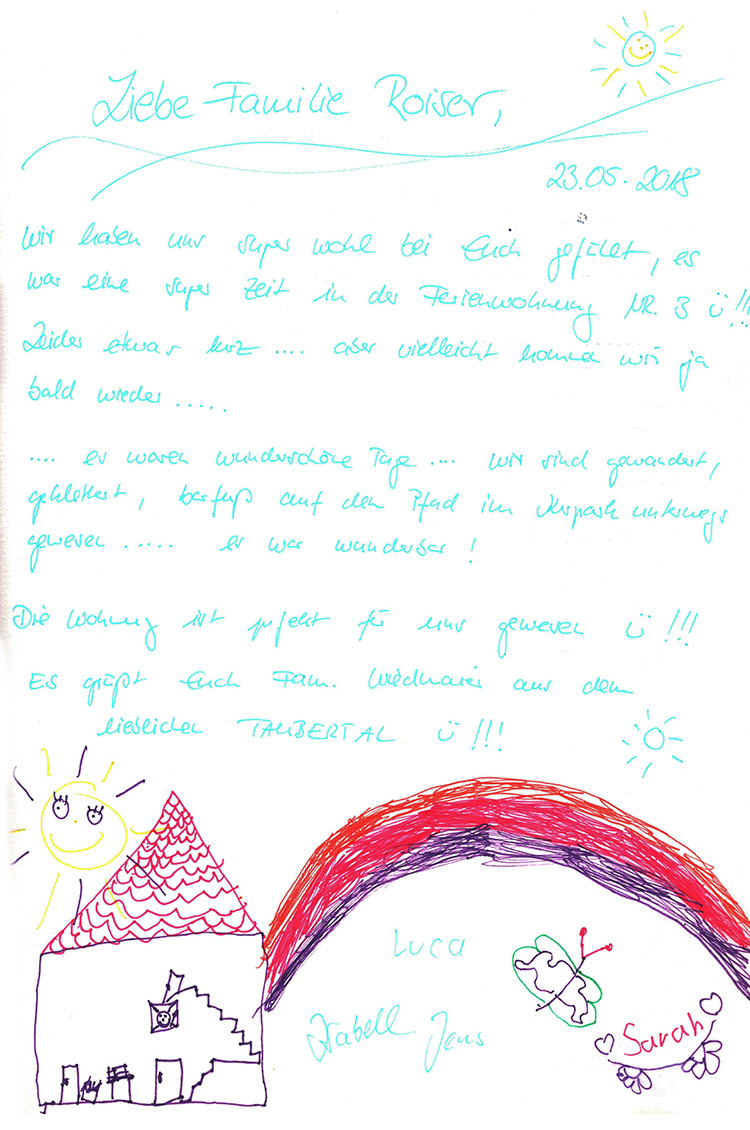 Liebe Familie Roiser,
23.05.2018
Wir haben uns super wohl bei Euch gefühlt, es
war eine super Zeit in der Ferienwohnung NR. 3 Ü!!!
Leider etwas kurz .... aber vielleicht kommen wir ja
bald wieder .....
.... es waren wunderschöne Tage .... wir sind gewandert,
geklettert, barfuß auf dem Pfad im Kurpark unterwegs
gewesen ..... es war wunderbar!
Die Wohnung ist perfekt für uns gewesen Ü!!!
Es grüßt Euch Fam. aus dem
lieblichen TAUBERTAL Ü!!!
Luca
Isabell Jens
Sarah